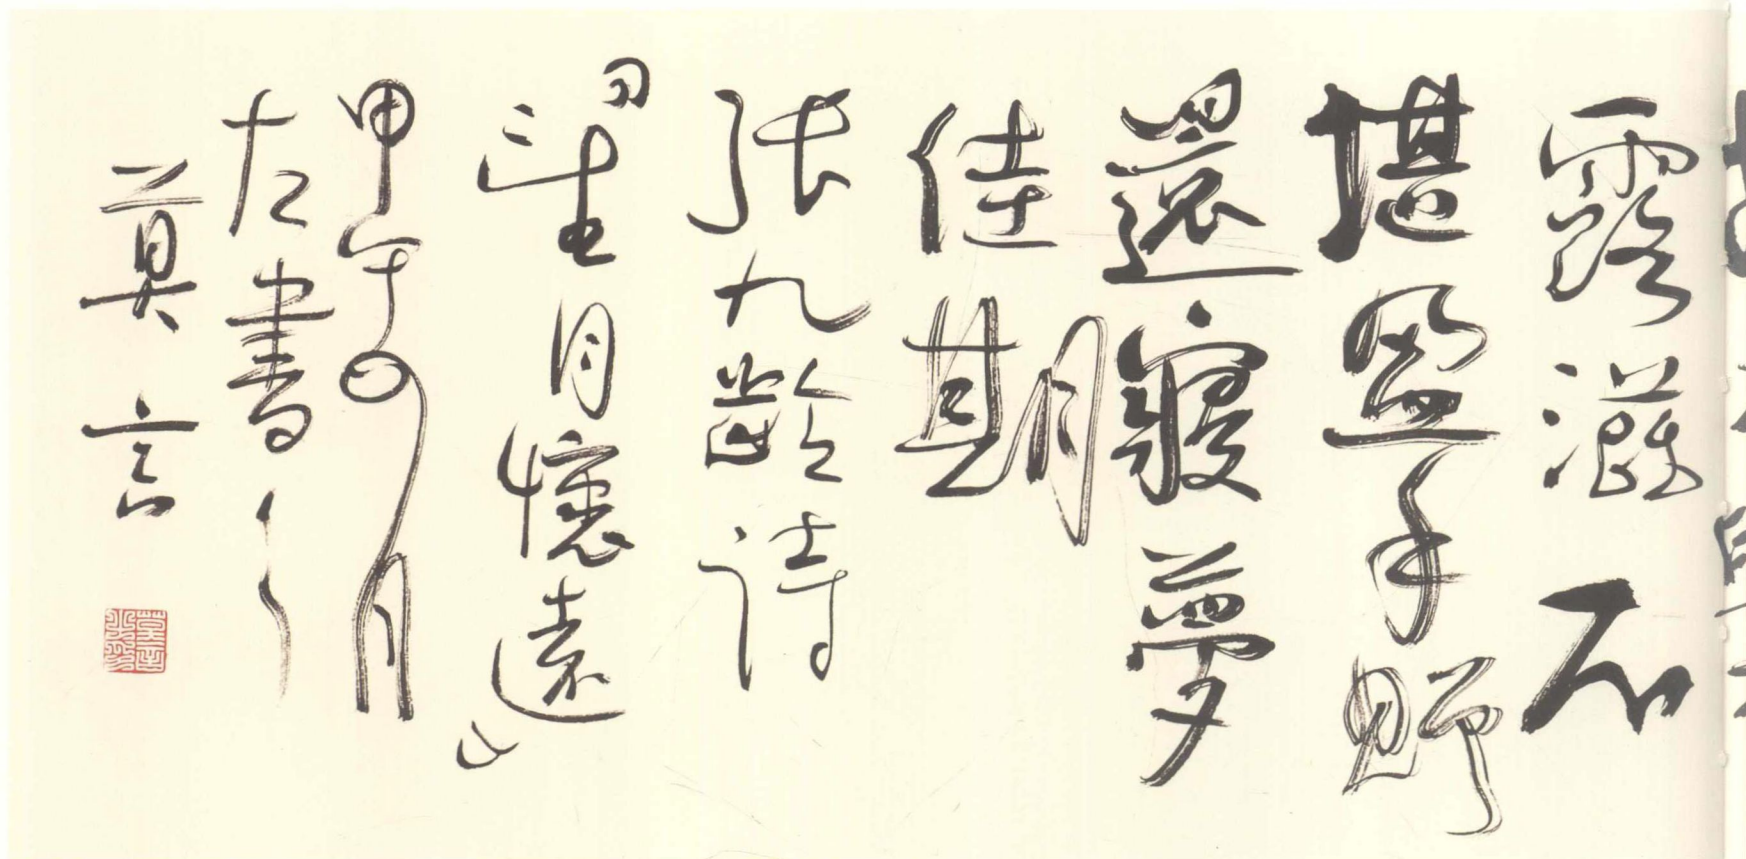 露滋不
堪盈手贈
還寢夢
佳期
張九齡詩
『望月懷遠』
甲午月
左書
莫言
莫言